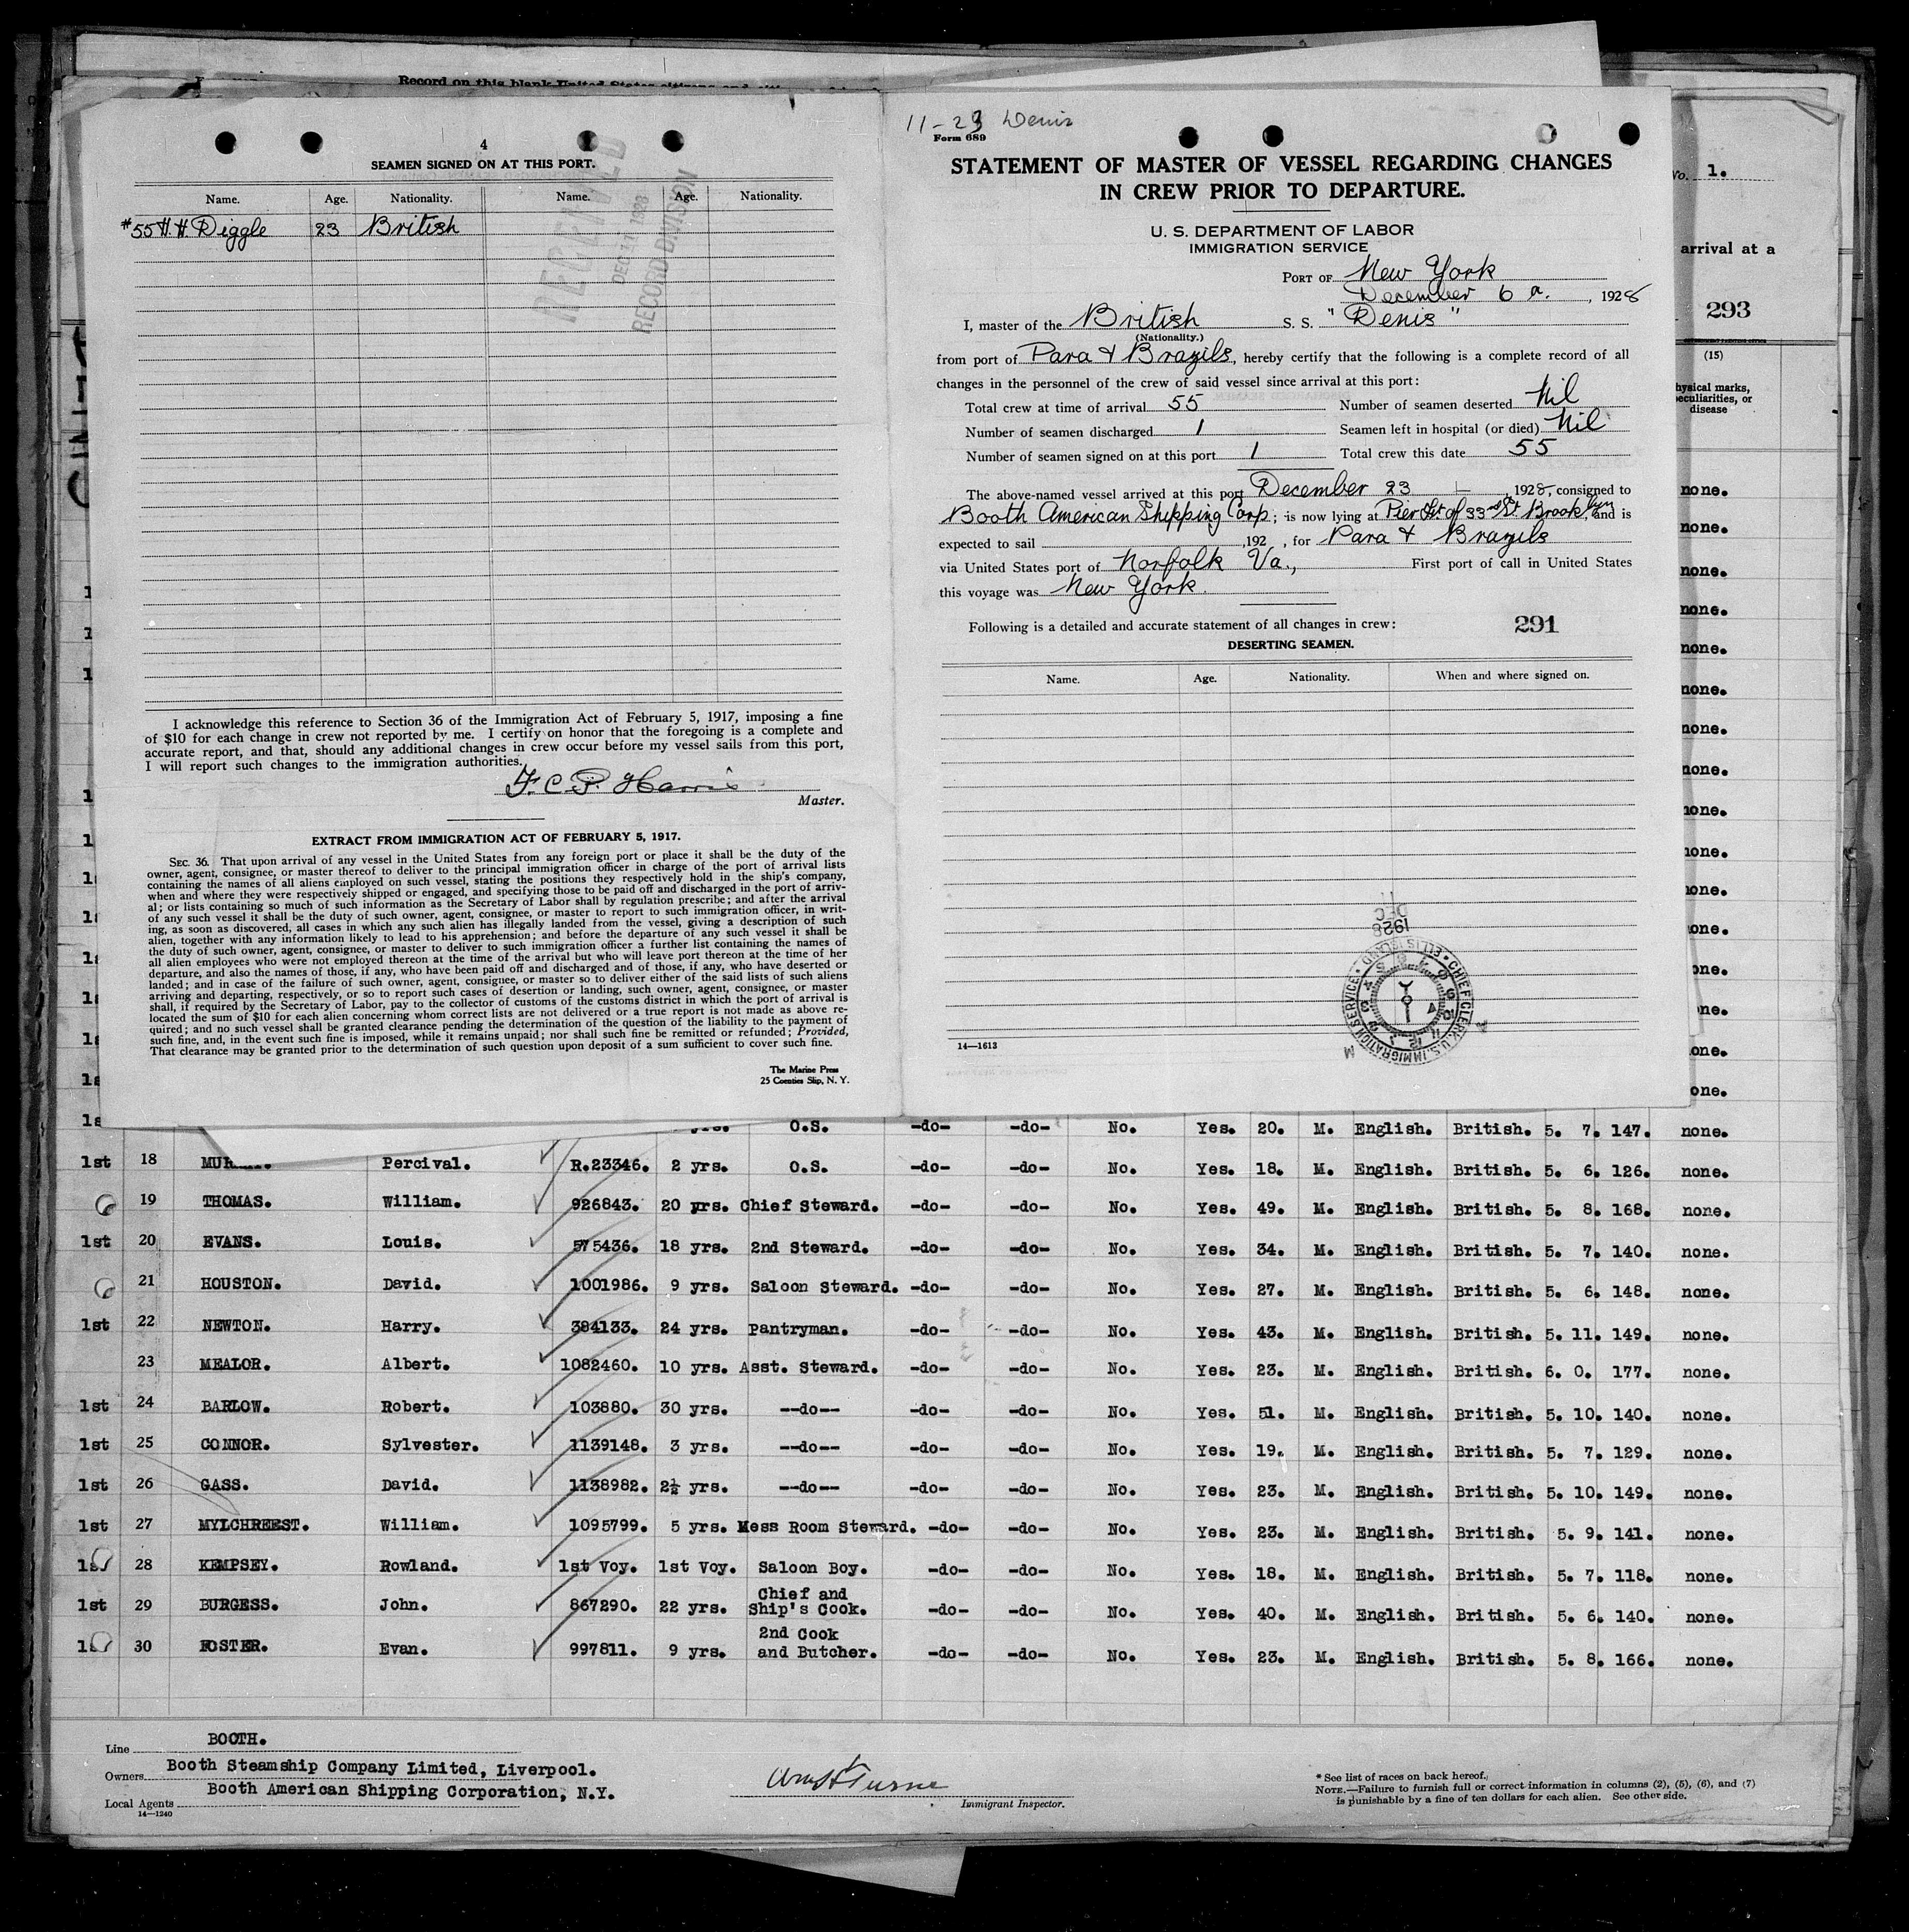 Record on this blank United States citizens and
4
SEAMEN SIGNED ON AT THIS PORT.
Name. Age. Nationality. Name. Age. Nationality.
#55 H. H. Diggle 23 British
RECEIVED
DEC 11 1928
RECORD DIVISION
I acknowledge this reference to Section 36 of the Immigration Act of February 5, 1917, imposing a fine
of $10 for each change in crew not reported by me. I certify on honor that the foregoing is a complete and
accurate report, and that, should any additional changes in crew occur before my vessel sails from this port,
I will report such changes to the immigration authorities.
F. C. P. Harris
Master.
EXTRACT FROM IMMIGRATION ACT OF FEBRUARY 5, 1917.
SEC. 36. That upon arrival of any vessel in the United States from any foreign port or place it shall be the duty of the
owner, agent, consignee, or master thereof to deliver to the principal immigration officer in charge of the port of arrival lists
containing the names of all aliens employed on such vessel, stating the positions they respectively hold in the ship's company,
when and where they were respectively shipped or engaged, and specifying those to be paid off and discharged in the port of arriv-
al; or lists containing so much of such information as the Secretary of Labor shall by regulation prescribe; and after the arrival
of any such vessel it shall be the duty of such owner, agent, consignee, or master to report to such immigration officer, in writ-
ing, as soon as discovered, all cases in which any such alien has illegally landed from the vessel, giving a description of such
alien, together with any information likely to lead to his apprehension; and before the departure of any such vessel it shall be
the duty of such owner, agent, consignee, or master to deliver to such immigration officer a further list containing the names of
all alien employees who were not employed thereon at the time of the arrival but who will leave port thereon at the time of her
departure, and also the names of those, if any, who have been paid off and discharged and of those, if any, who have deserted or
landed; and in case of the failure of such owner, agent, consignee, or master so to deliver either of the said lists of such aliens
arriving and departing, respectively, or so to report such cases of desertion or landing, such owner, agent, consignee, or master
shall, if required by the Secretary of Labor, pay to the collector of customs of the customs district in which the port of arrival is
located the sum of $10 for each alien concerning whom correct lists are not delivered or a true report is not made as above re-
quired; and no such vessel shall be granted clearance pending the determination of the question of the liability to the payment of
such fine, and, in the event such fine is imposed, while it remains unpaid; nor shall such fine be remitted or refunded; Provided,
That clearance may be granted prior to the determination of such question upon deposit of a sum sufficient to cover such fine.
The Marine Press
25 Coenties Slip, N. Y.
11-23 Denis
Form 689
STATEMENT OF MASTER OF VESSEL REGARDING CHANGES
IN CREW PRIOR TO DEPARTURE.
U. S. DEPARTMENT OF LABOR
IMMIGRATION SERVICE
PORT OF New York
December 6 a., 1928
I, master of the British S. S. "Denis"
(Nationality.)
from port of Para & Brazils, hereby certify that the following is a complete record of all
changes in the personnel of the crew of said vessel since arrival at this port:
Total crew at time of arrival 55 Number of seamen deserted Nil
Number of seamen discharged 1 Seamen left in hospital (or died) Nil
Number of seamen signed on at this port 1 Total crew this date 55
The above-named vessel arrived at this port December 23, 1928, consigned to
Booth American Shipping Corp; is now lying at Pier ft. of 33rd St. Brooklyn, and is
expected to sail , 192 , for Para & Brazils
via United States port of Norfolk Va., First port of call in United States
this voyage was New York.
Following is a detailed and accurate statement of all changes in crew: 291
DESERTING SEAMEN.
Name. Age. Nationality. When and where signed on.
DEC 11
1928
CHIEF CLERK, U.S. IMMIGRATION SERVICE • ELLIS ISLAND
14—1613
No. 1.
arrival at a
293
(15)
hysical marks,
eculiarities, or
disease
none.
none.
none.
none.
none.
none.
none.
none.
none.
none.
none.
none.
none.
none.
none.
none.
yrs. O.S. -do- -do- No. Yes. 20. M. English. British. 5. 7. 147. none.
1st 18 Percival. R.23346. 2 yrs. O.S. -do- -do- No. Yes. 18. M. English. British. 5. 6. 126. none.
19 THOMAS. William. 926843. 20 yrs. Chief Steward. -do- -do- No. Yes. 49. M. English. British. 5. 8. 168. none.
1st 20 EVANS. Louis. 575436. 18 yrs. 2nd Steward. -do- -do- No. Yes. 34. M. English. British. 5. 7. 140. none.
21 HOUSTON. David. 1001986. 9 yrs. Saloon Steward. -do- -do- No. Yes. 27. M. English. British. 5. 6. 148. none.
1st 22 NEWTON. Harry. 384133. 24 yrs. Pantryman. -do- -do- No. Yes. 43. M. English. British. 5. 11. 149. none.
23 MEALOR. Albert. 1082460. 10 yrs. Asst. Steward. -do- -do- No. Yes. 23. M. English. British. 6. 0. 177. none.
1st 24 BARLOW. Robert. 103880. 30 yrs. --do-- -do- -do- No. Yes. 51. M. English. British. 5. 10. 140. none.
1st 25 CONNOR. Sylvester. 1139148. 3 yrs. --do-- -do- -do- No. Yes. 19. M. English. British. 5. 7. 129. none.
1st 26 GASS. David. 1138982. 2½ yrs. --do-- -do- -do- No. Yes. 23. M. English. British. 5. 10. 149. none.
1st 27 MYLCHREEST. William. 1095799. 5 yrs. Mess Room Steward. -do- -do- No. Yes. 23. M. English. British. 5. 9. 141. none.
28 KEMPSEY. Rowland. 1st Voy. 1st Voy. Saloon Boy. -do- -do- No. Yes. 18. M. English. British. 5. 7. 118. none.
1st 29 BURGESS. John. 867290. 22 yrs. Chief and Ship's Cook. -do- -do- No. Yes. 40. M. English. British. 5. 6. 140. none.
30 FOSTER. Evan. 997811. 9 yrs. 2nd Cook and Butcher. -do- -do- No. Yes. 23. M. English. British. 5. 8. 166. none.
Line BOOTH.
Owners Booth Steamship Company Limited, Liverpool.
Local Agents Booth American Shipping Corporation, N.Y.
14—1240
Immigrant Inspector.
* See list of races on back hereof.
NOTE.—Failure to furnish full or correct information in columns (2), (5), (6), and (7)
is punishable by a fine of ten dollars for each alien. See other side.